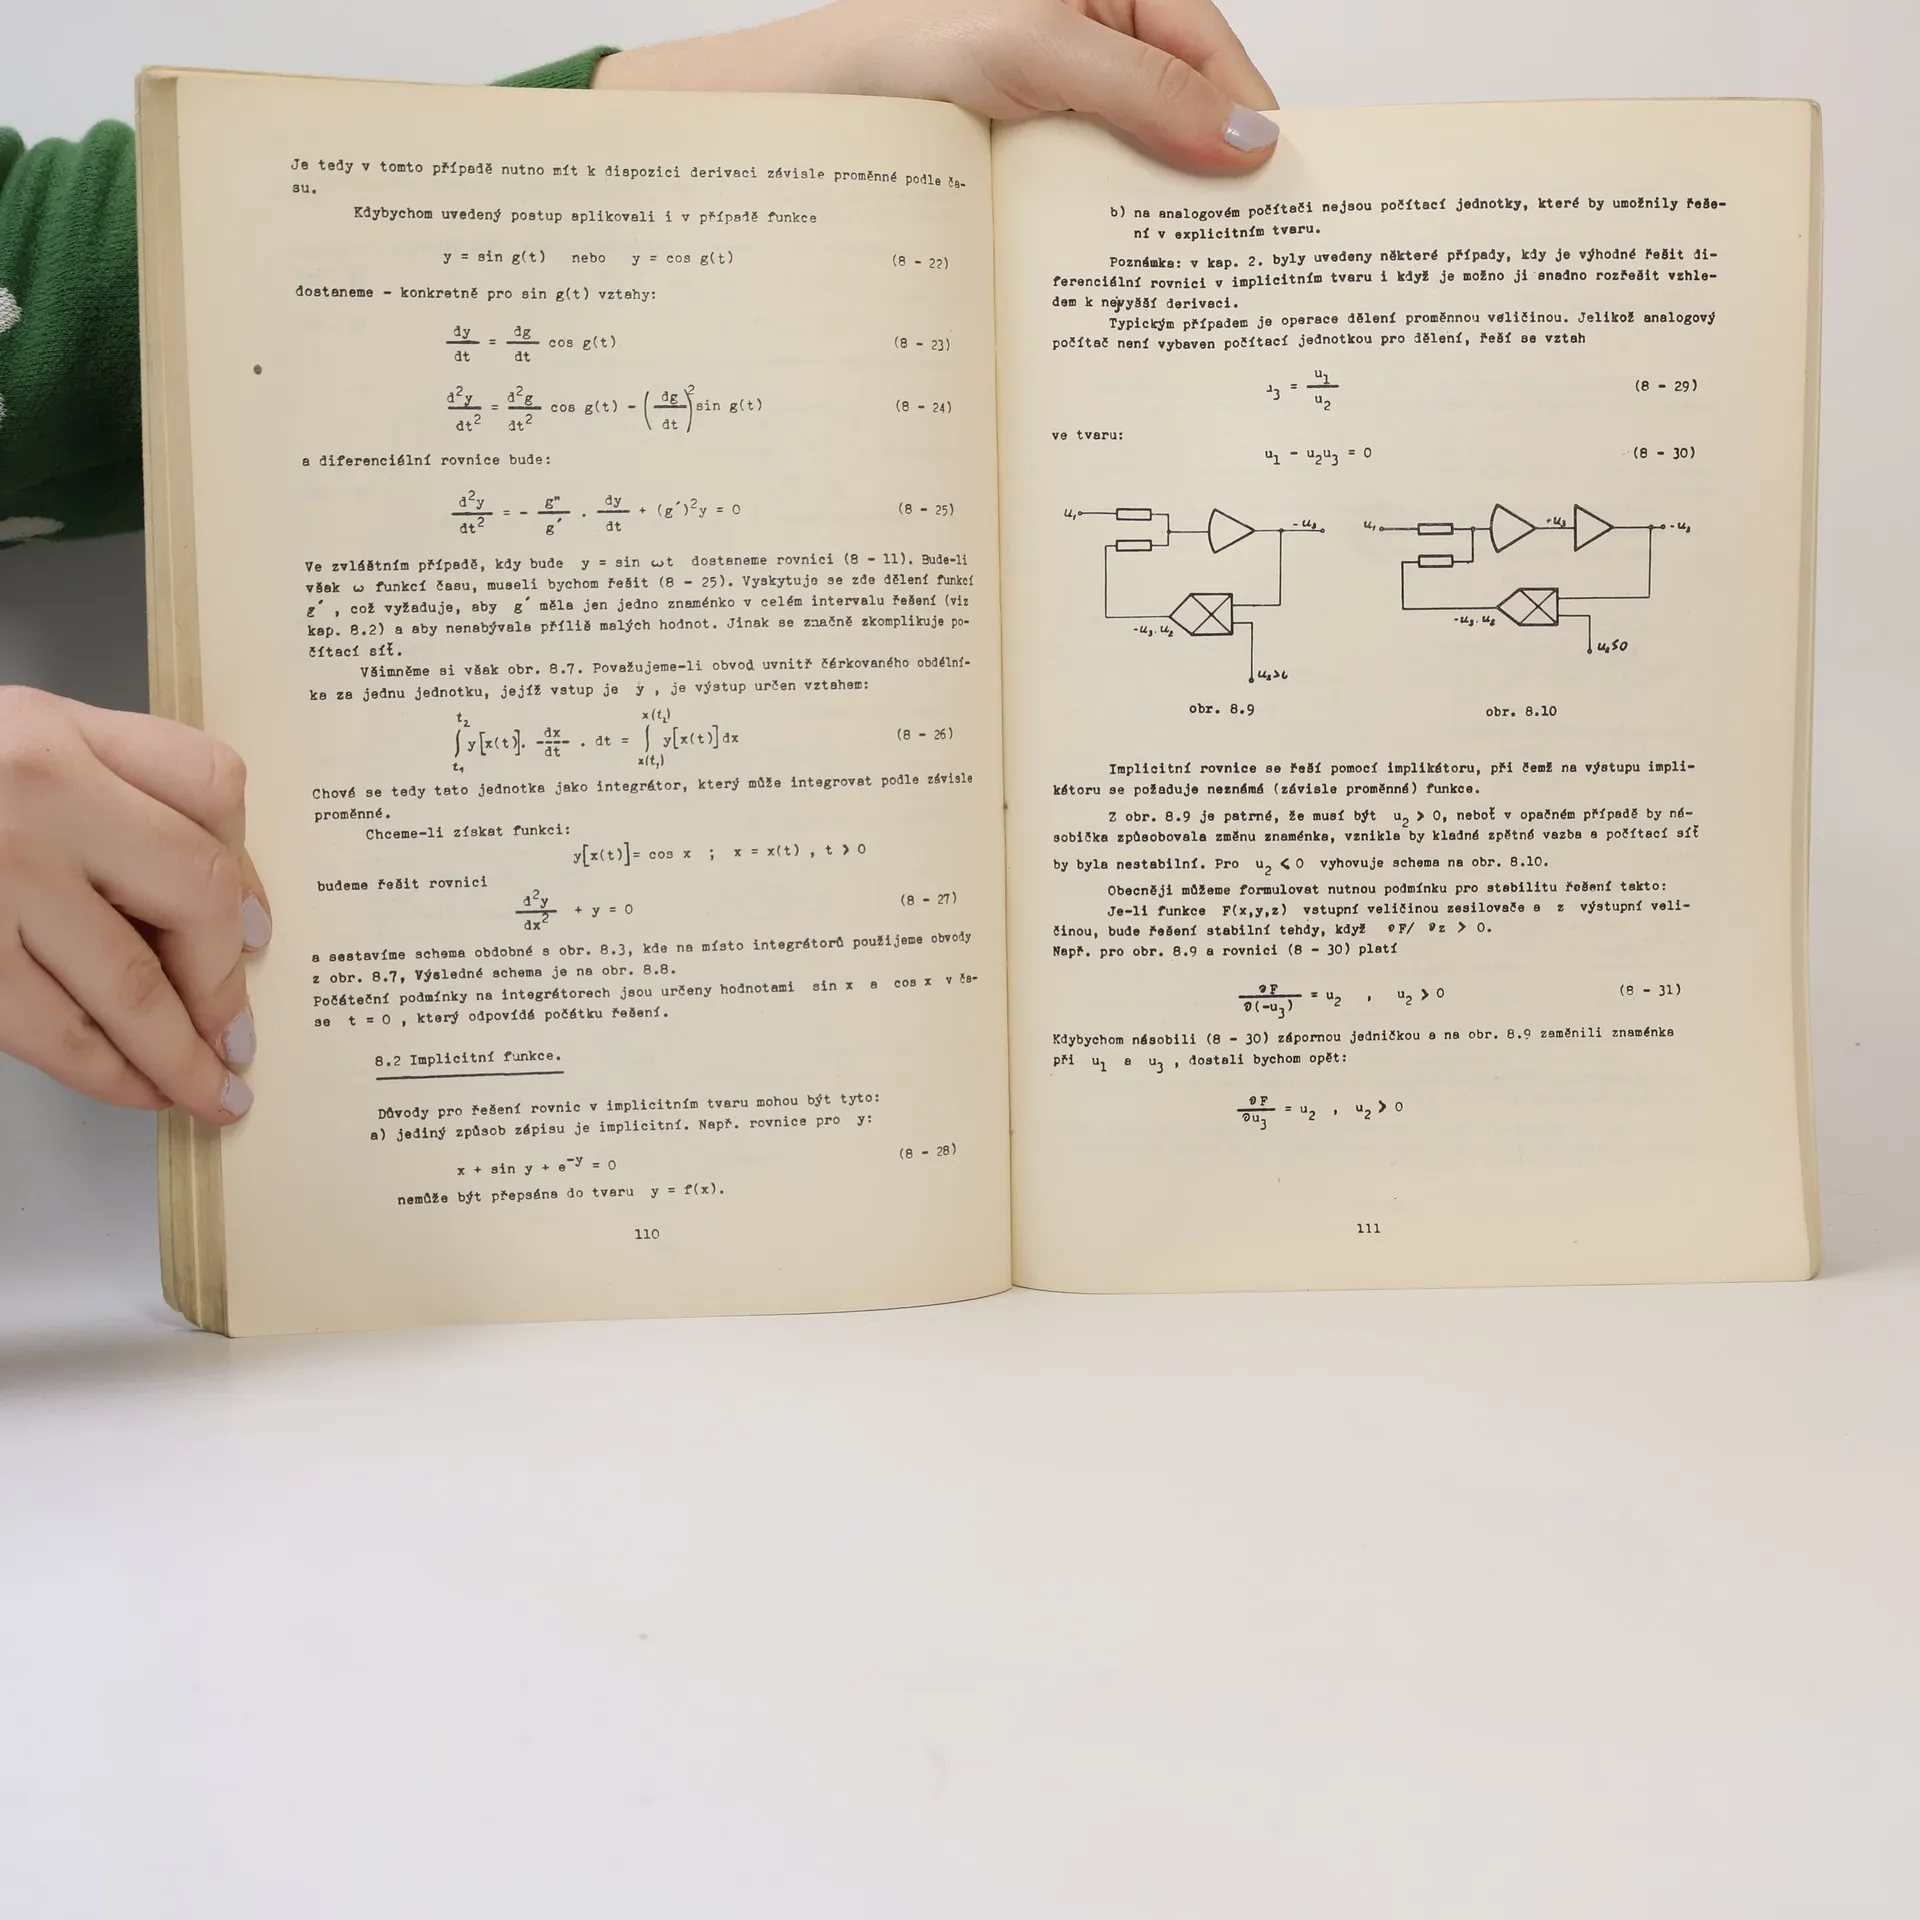 Je tedy v tomto případě nutno mít k dispozici derivaci závisle proměnné podle ča-
su.
Kdybychom uvedený postup aplikovali i v případě funkce
y = sin g(t) nebo y = cos g(t) (8 - 22)
dostaneme - konkretně pro sin g(t) vztahy:
dy/dt = dg/dt cos g(t) (8 - 23)
d²y/dt² = d²g/dt² cos g(t) - (dg/dt)² sin g(t) (8 - 24)
a diferenciální rovnice bude:
d²y/dt² = - g"/g´ . dy/dt + (g´)²y = 0 (8 - 25)
Ve zvláštním případě, kdy bude y = sin ωt dostaneme rovnici (8 - 11). Bude-li
však ω funkcí času, museli bychom řešit (8 - 25). Vyskytuje se zde dělení funkcí
g´ , což vyžaduje, aby g´ měla jen jedno znaménko v celém intervalu řešení (viz
kap. 8.2) a aby nenabývala příliš malých hodnot. Jinak se značně zkomplikuje po-
čítací síť.
Všimněme si však obr. 8.7. Považujeme-li obvod uvnitř čárkovaného obdélní-
ka za jednu jednotku, jejíž vstup je y , je výstup určen vztahem:
∫_{t₁}^{t₂} y[x(t)]. dx/dt . dt = ∫_{x(t₁)}^{x(t₂)} y[x(t)]dx (8 - 26)
Chová se tedy tato jednotka jako integrátor, který může integrovat podle závisle
proměnné.
Chceme-li získat funkci:
y[x(t)]= cos x ; x = x(t) , t > 0
budeme řešit rovnici
d²y/dx² + y = 0 (8 - 27)
a sestavíme schema obdobné s obr. 8.3, kde na místo integrátorů použijeme obvody
z obr. 8.7, Výsledné schema je na obr. 8.8.
Počáteční podmínky na integrátorech jsou určeny hodnotami sin x a cos x v ča-
se t = 0 , který odpovídá počátku řešení.
8.2 Implicitní funkce.
Důvody pro řešení rovnic v implicitním tvaru mohou být tyto:
a) jediný způsob zápisu je implicitní. Např. rovnice pro y:
x + sin y + e⁻ʸ = 0 (8 - 28)
nemůže být přepsána do tvaru y = f(x).
110
b) na analogovém počítači nejsou počítací jednotky, které by umožnily řeše-
ní v explicitním tvaru.
Poznámka: v kap. 2. byly uvedeny některé případy, kdy je výhodné řešit di-
ferenciální rovnici v implicitním tvaru i když je možno ji snadno rozřešit vzhle-
dem k nejvyšší derivaci.
Typickým případem je operace dělení proměnnou veličinou. Jelikož analogový
počítač není vybaven počítací jednotkou pro dělení, řeší se vztah
u₃ = u₁/u₂ (8 - 29)
ve tvaru:
u₁ - u₂u₃ = 0 (8 - 30)
u₁ -u₃
-u₃.u₂
u₂>0
obr. 8.9
u₁ +u₃ -u₃
-u₃.u₂
u₂≤0
obr. 8.10
Implicitní rovnice se řeší pomocí implikátoru, při čemž na výstupu impli-
kátoru se požaduje neznámá (závisle proměnná) funkce.
Z obr. 8.9 je patrné, že musí být u₂ > 0, neboť v opačném případě by ná-
sobička způsobovala změnu znaménka, vznikla by kladná zpětná vazba a počítací síť
by byla nestabilní. Pro u₂ < 0 vyhovuje schema na obr. 8.10.
Obecněji můžeme formulovat nutnou podmínku pro stabilitu řešení takto:
Je-li funkce F(x,y,z) vstupní veličinou zesilovače a z výstupní veli-
činou, bude řešení stabilní tehdy, když ∂F/ ∂z > 0.
Např. pro obr. 8.9 a rovnici (8 - 30) platí
∂F/∂(-u₃) = u₂ , u₂ > 0 (8 - 31)
Kdybychom násobili (8 - 30) zápornou jedničkou a na obr. 8.9 zaměnili znaménka
při u₁ a u₃ , dostali bychom opět:
∂F/∂u₃ = u₂ , u₂ > 0
111